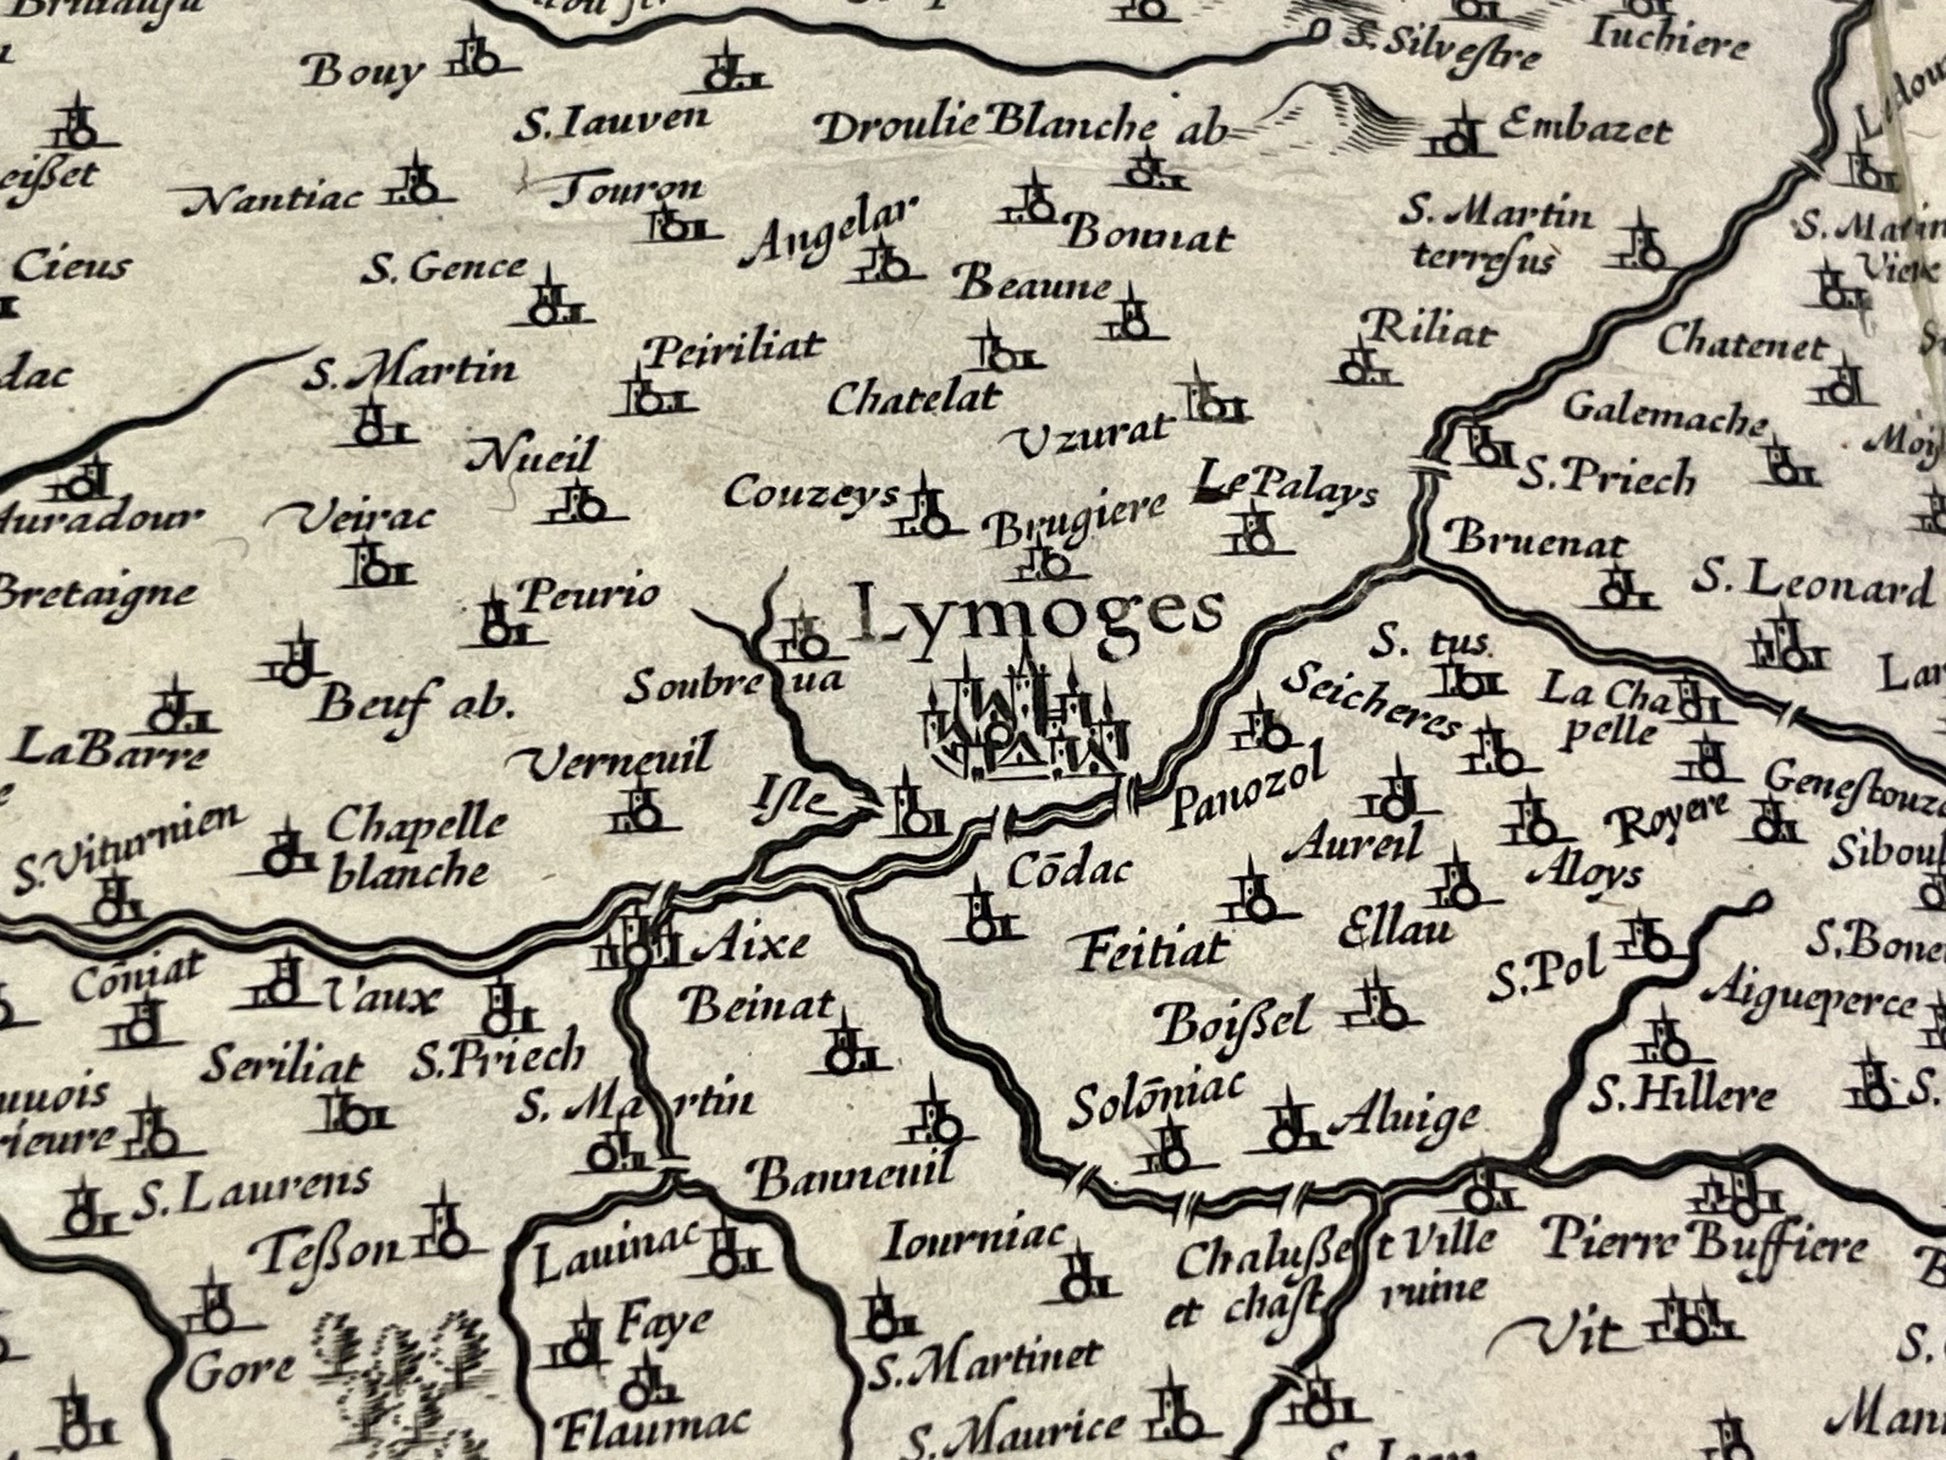 Bouy
S. Silvestre
Iuchiere
S. Iauven
Droulie Blanche ab
Embazet
Nantiac
Touron
Angelar
Bonnat
S. Martin
terresus
Cieus
S. Gence
Beaune
Peiriliat
Riliat
Chatenet
S. Martin
Chatelat
Vzurat
Galemache
Nueil
Couzeys
Brugiere
Le Palays
S. Priech
Auradour
Veirac
Bruenat
Bretaigne
Peurio
Lymoges
S. Leonard
S. tus.
Soubre ua
Seicheres
La Cha
pelle
Beuf ab.
La Barre
Verneuil
Isle
Panozol
Royere
S. Viturnien
Chapelle
blanche
Cōdac
Aureil
Aloys
Aixe
Feitiat
Ellau
S. Pol
Cōniat
Vaux
Beinat
Boißel
Aigueperce
Seriliat
S. Priech
S. Martin
Solōniac
Aluige
S. Hillere
S. Laurens
Banneuil
Teßon
Lauinac
Iourniac
Chalußet Ville
et chast ruine
Pierre Buffiere
Gore
Faye
S. Martinet
Vit
Flaumac
S. Maurice